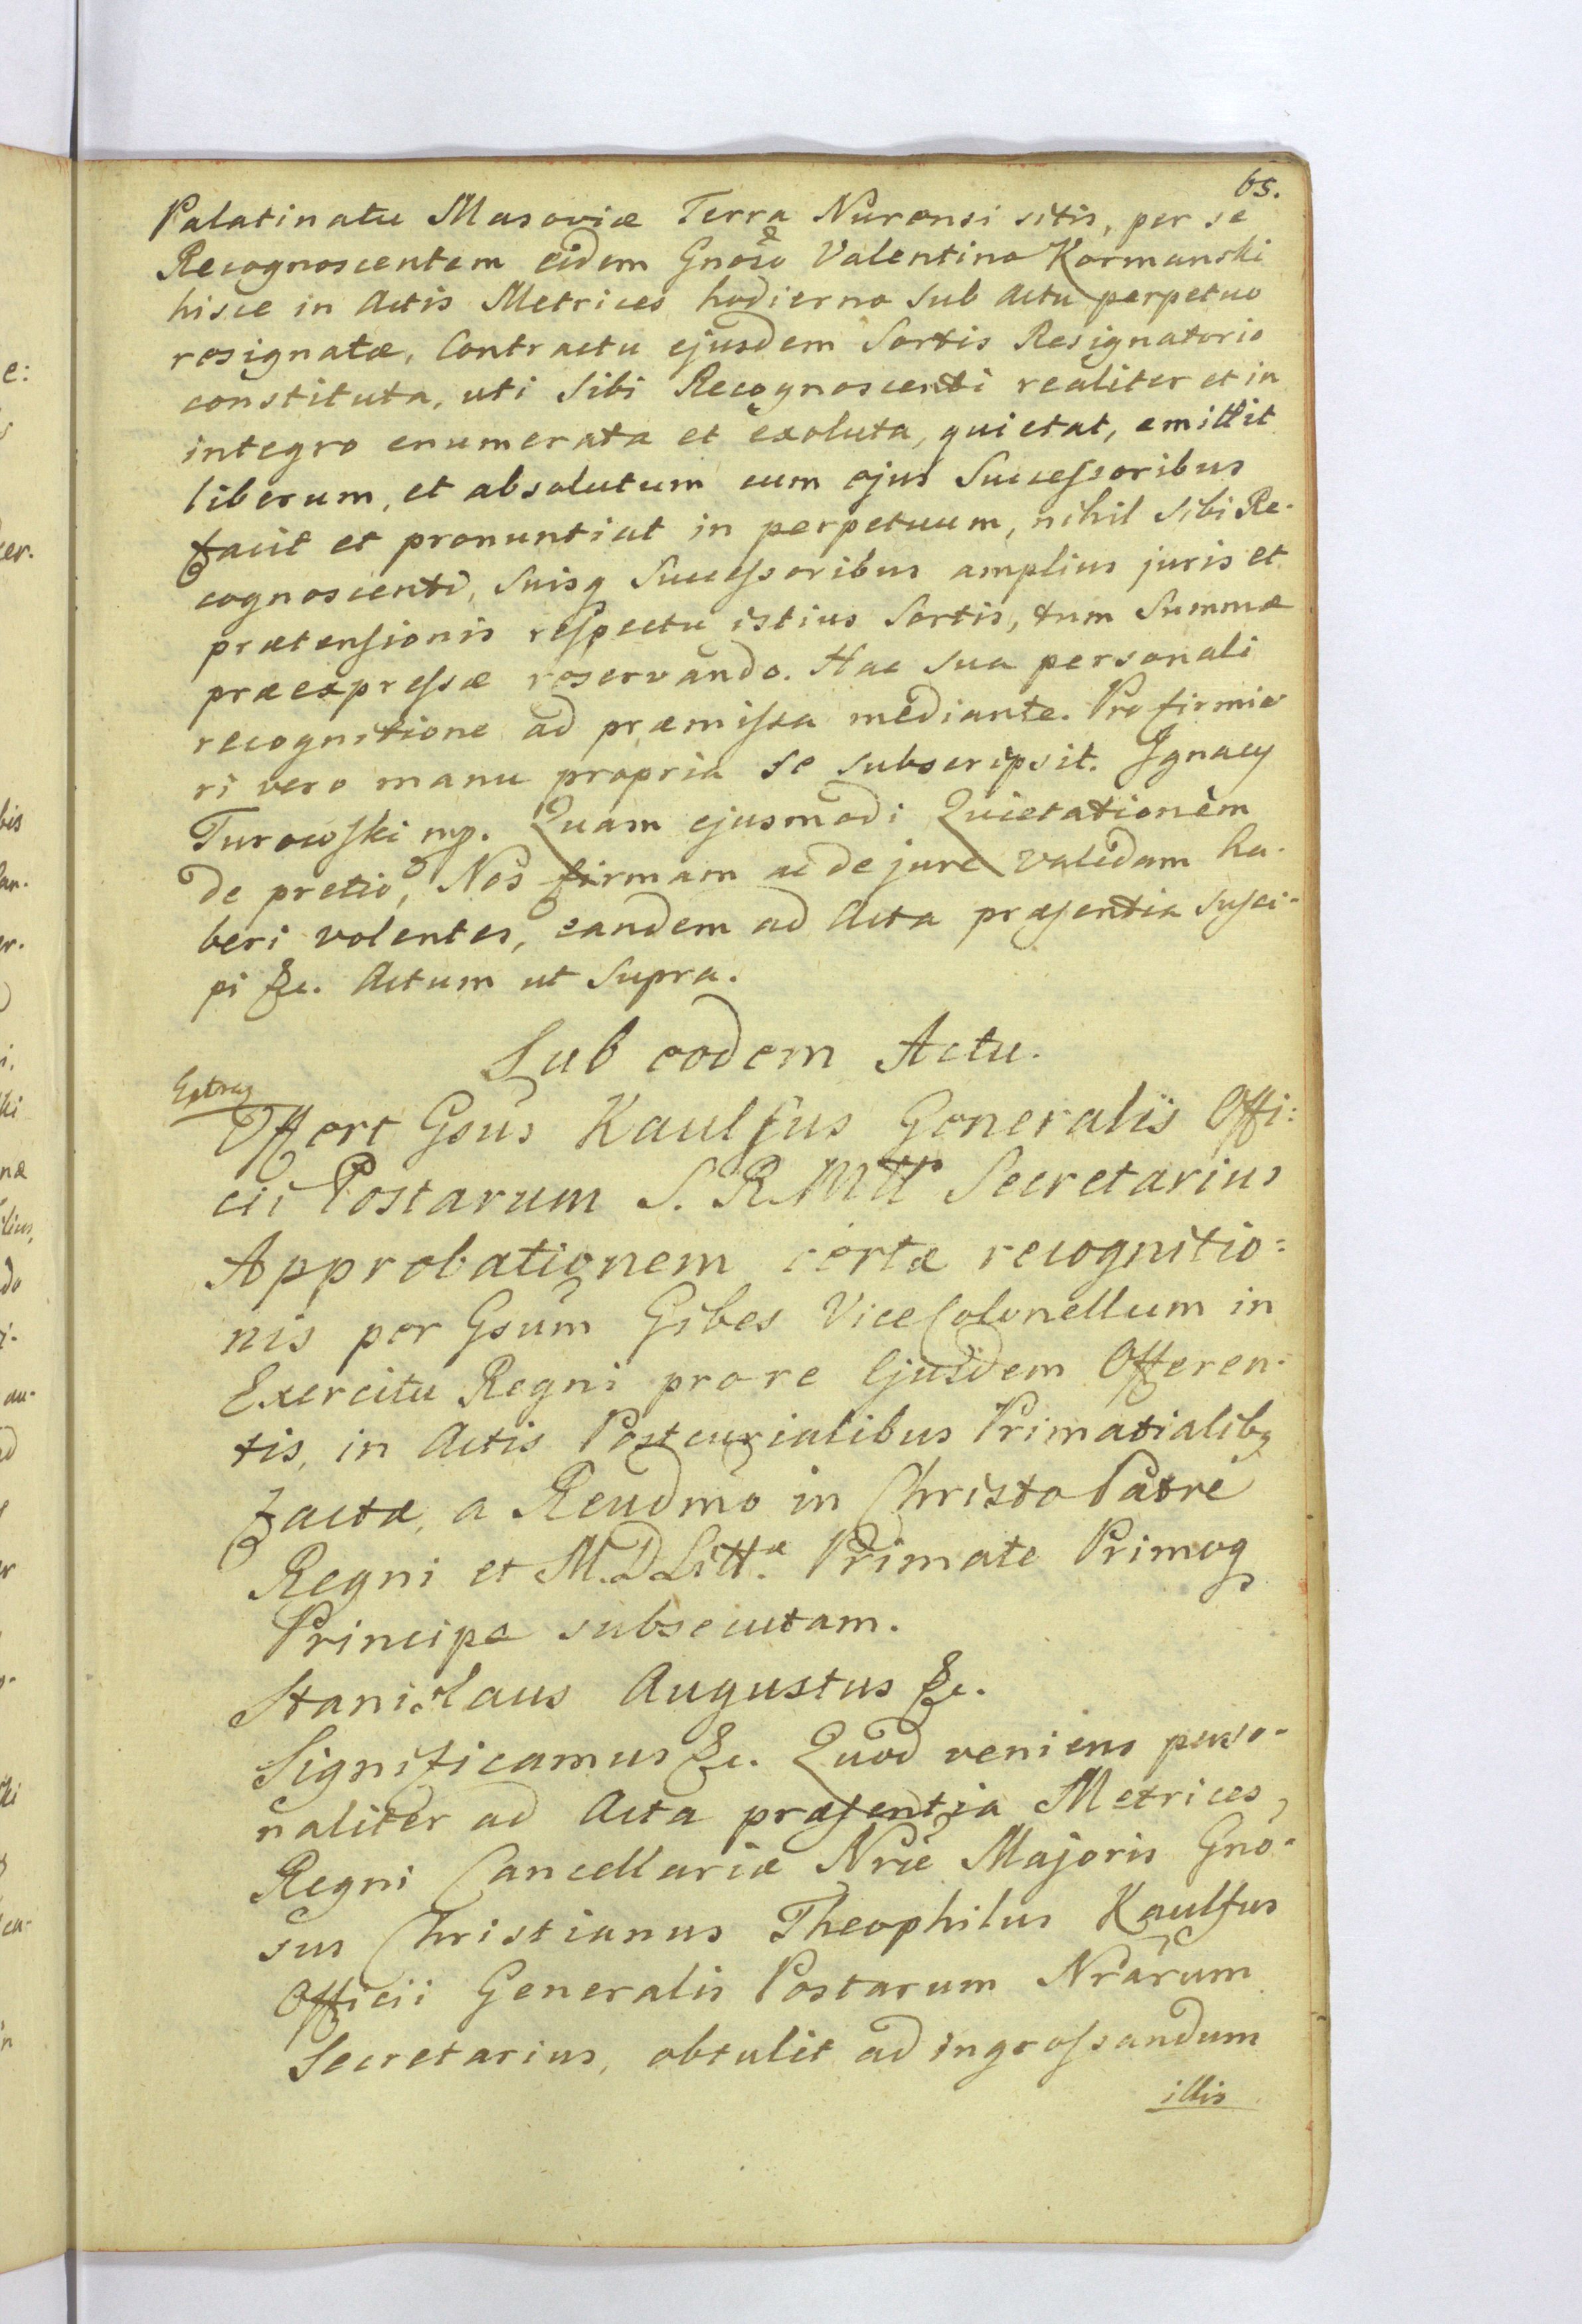 65.
Palatinatu Masoviæ Terra Nurensi sitis, per se
Recognoscentem eidem Gnoso Valentino Karmanski
hisce in Actis Metrices hodierno sub Actu perpetuo
resignatæ, Contractu ejusdem Sortis Resignatorio
constituta, uti sibi Recognoscenti realiter et in
integro enumerata et exoluta, quietat, emittit
liberum, et absolutum cum ejus Successoribus
facit et pronuntiat in perpetuum, nihil sibi Re-
cognoscenti, suisq Successoribus amplius juris et
prætensionis respectu istius Sortis, tum Summæ
præexpressæ reservando. Hac sua personali
recognitione ad præmissa mediante. Pro firmio
ri vero manu propria se subscripsit. Ignacy
Turowski mp. Quam ejusmodi Quietationem
de pretio, Nos firmam ac de jure validam ha-
beri volentes, eandem ad Acta præsentia susci-
pi &c. Actum ut supra.
Sub eodem Actu.
Offert Gsus Kaulfus Generalis Offi:
cii Postarum S. R. Mtt Secretarius
Approbationem certæ recognitio:
nis per Gsum Gibes ViceColonellum in
Exercitu Regni pro re Ejusdem Offeren-
tis, in Actis Postcurialibus Primatialibq
factæ, a Reudmo in Christo Patre
Regni et M.D.Litt.æ Primate Primoq
Principe subsecutam.
Stanislaus Augustus &c.
Significamus &c. Quod veniens perso-
naliter ad Acta præsentia Metrices
Regni Cancellariæ Nræ Majoris Gno-
sus Christianus Theophilus Kaulfus
Officii Generalis Postarum Nrarum
Secretarius, obtulit ad ingrossandum
illis